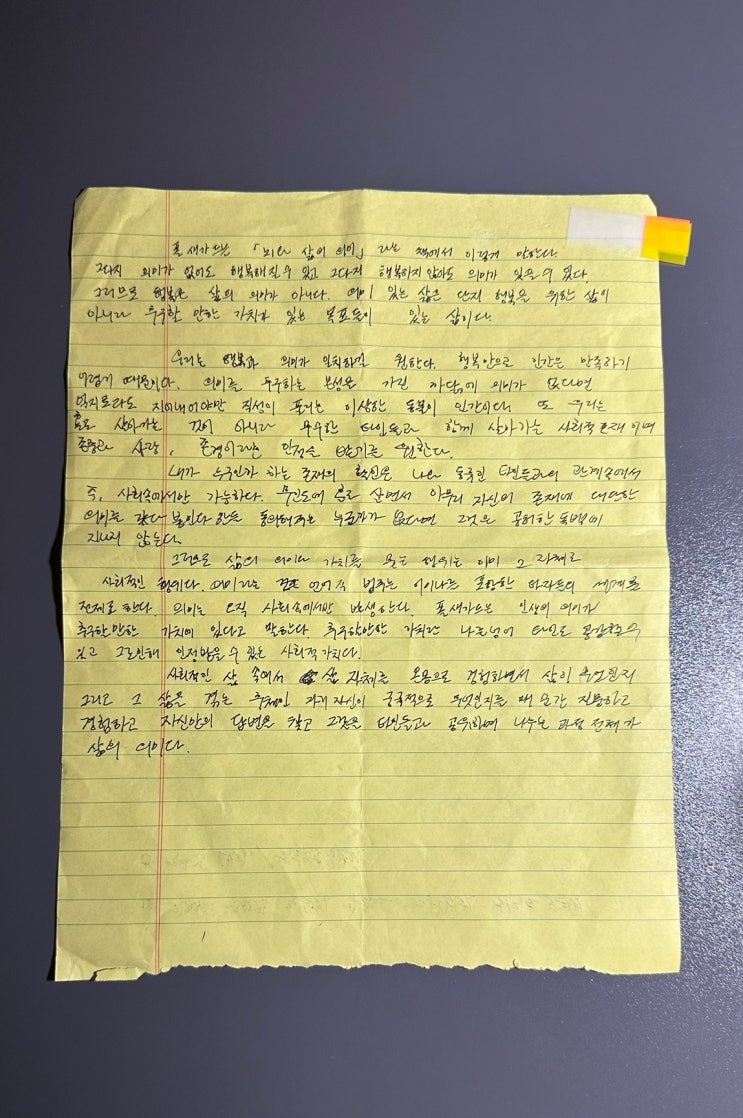 폴 새가드는 「뇌와 삶의 의미」 라는 책에서 이렇게 말한다.
그다지 의미가 없어도 행복해질 수 있고 그다지 행복하지 않아도 의미가 있을 수 있다.
그러므로 행복은 삶의 의미가 아니다. 의미 있는 삶은 단지 행복을 위한 삶이
아니라 추구할 만한 가치가 있는 목표들이 있는 삶이다.
우리는 행복과 의미가 일치하길 원한다. 행복만으로 인간은 만족하기
어렵기 때문이다. 의미를 추구하는 본성을 가진 까닭에 의미가 없다면
억지로라도 지어내어야만 직성이 풀리는 이상한 동물이 인간이다. 또 우리는
홀로 살아가는 것이 아니라 무수한 타인들과 함께 살아가는 사회적 존재이며
존중과 사랑, 존경이라는 인정을 받기를 원한다.
내가 누구인가 하는 존재의 확인은 나와 동류인 타인들과의 관계속에서
즉, 사회속에서만 가능하다. 무인도에 홀로 살면서 아무리 자신의 존재에 대단한
의미를 갖다 붙인다 한들 동의해주는 누군가가 없다면 그것은 공허한 독백에
지나지 않는다.
그러므로 삶의 의미와 가치를 묻는 행위는 이미 그 자체로
사회적인 행위다. 의미라는 언어적 범주는 이미나를 포함한 타자들의 세계를
전제로 한다. 의미는 오직 사회속에서만 발생한다. 폴새가드는 인생의 의미가
추구할만한 가치에 있다고 말한다. 추구할만한 가치란 나를넘어 타인도 공감할수
있고 그로인해 인정받을 수 있는 사회적가치다.
사회적인 삶 속에서 삶 자체를 온몸으로 경험하면서 삶이 무엇인지
그리고 그 삶을 겪는 주체인 과거 자신이 궁극적으로 무엇인지를 매 순간 질문하고
경험하고 자신만의 답변을 찾고 그것을 타인들과 공유하며 나누는 과정 전체가
삶의 의미다.